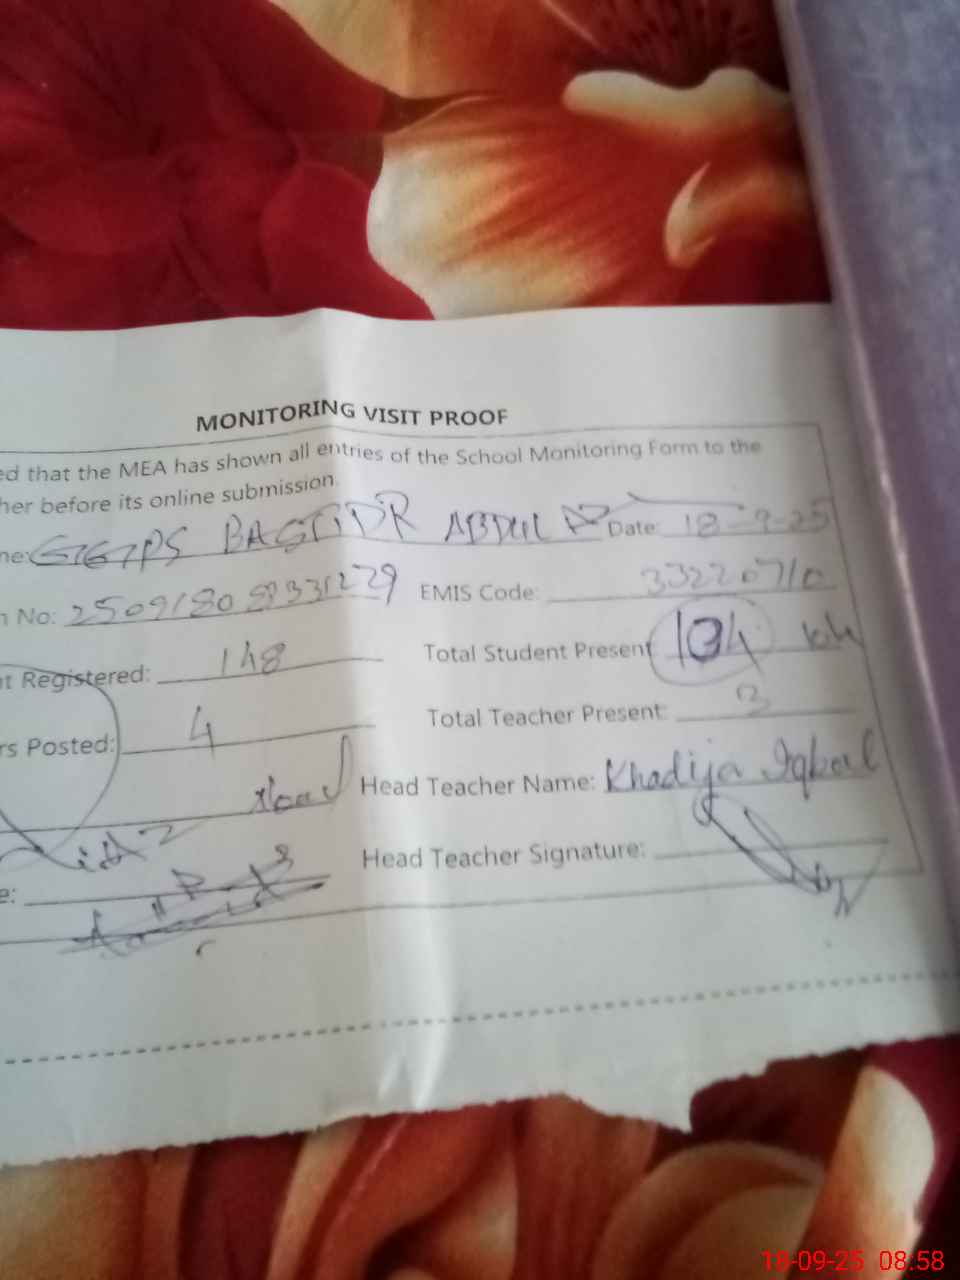 MONITORING VISIT PROOF
ed that the MEA has shown all entries of the School Monitoring Form to the
her before its online submission.
me: GGPS BAGH ABDUL Date: 18-9-25
n No: EMIS Code: 33220710
t Registered: 148 Total Student Present 104
rs Posted: 4 Total Teacher Present: 3
Head Teacher Name: Khadija Iqbal
Head Teacher Signature:
e:
18-09-25 08:58